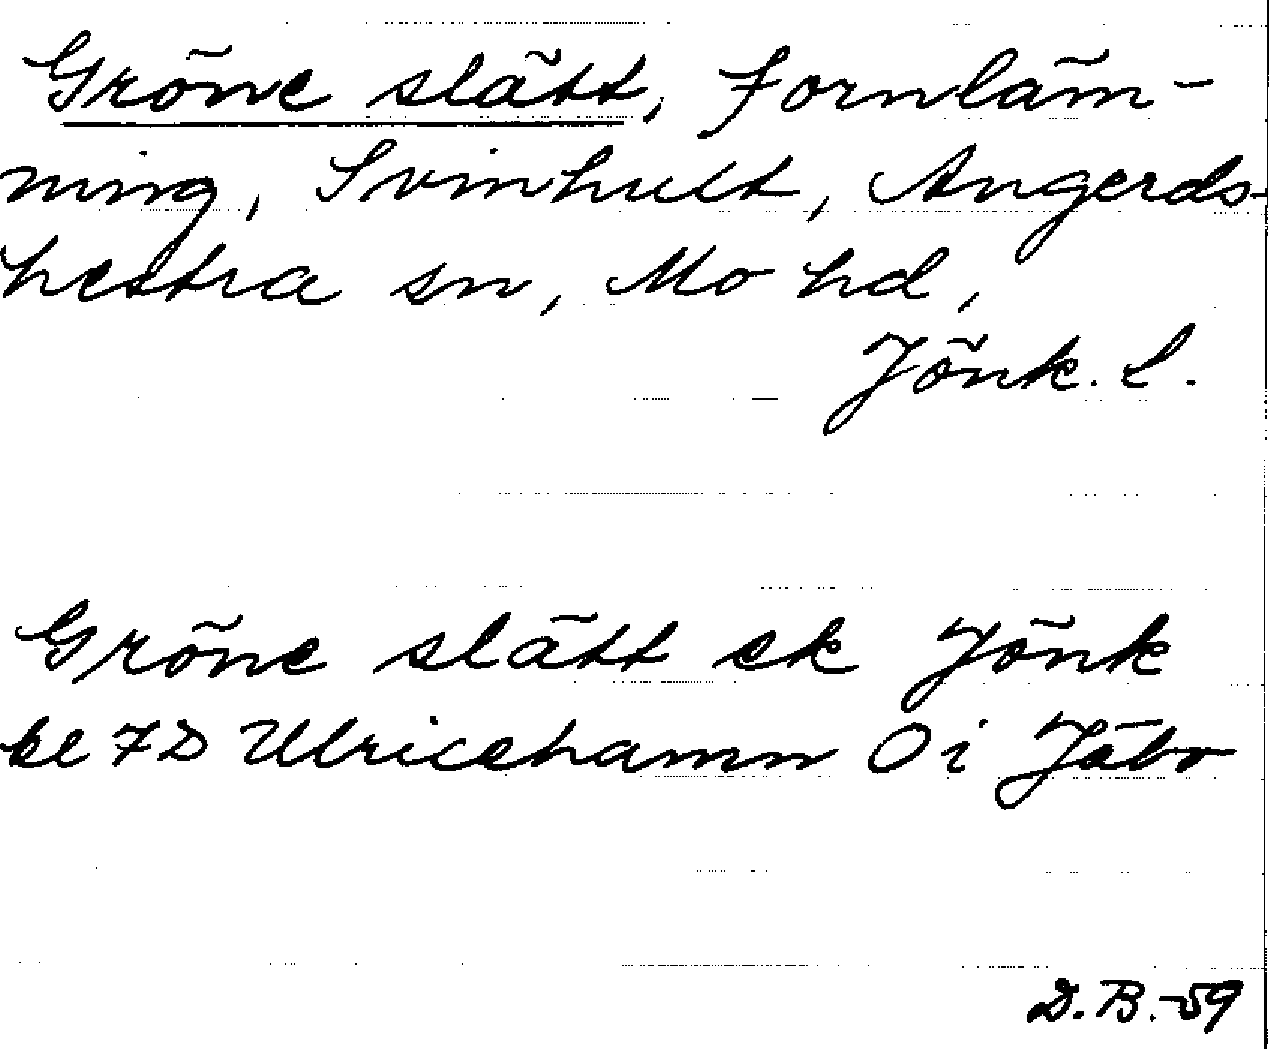 Gröne slätt, fornläm-
ning, Svinhult, Angerds-
hestra sn, Mo hd,
Jönk. L.
Gröne slätt ek Jönk
bl 7D Ulricehamn Oi Jäbo
D.B.-59